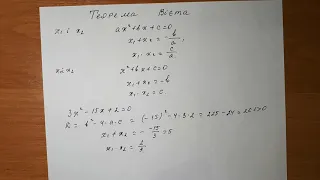 Теорема Вієта
x₁ і x₂ ax²+bx+c=0
x₁+x₂=-b/a,
x₁·x₂=c/a
x₁ і x₂ x²+bx+c=0
x₁+x₂=-b
x₁·x₂=c
3x²-15x+2=0
D=b²-4·a·c=(-15)²-4·3·2=225-24=201>0
x₁+x₂=-(-15)/3=5
x₁·x₂=2/3